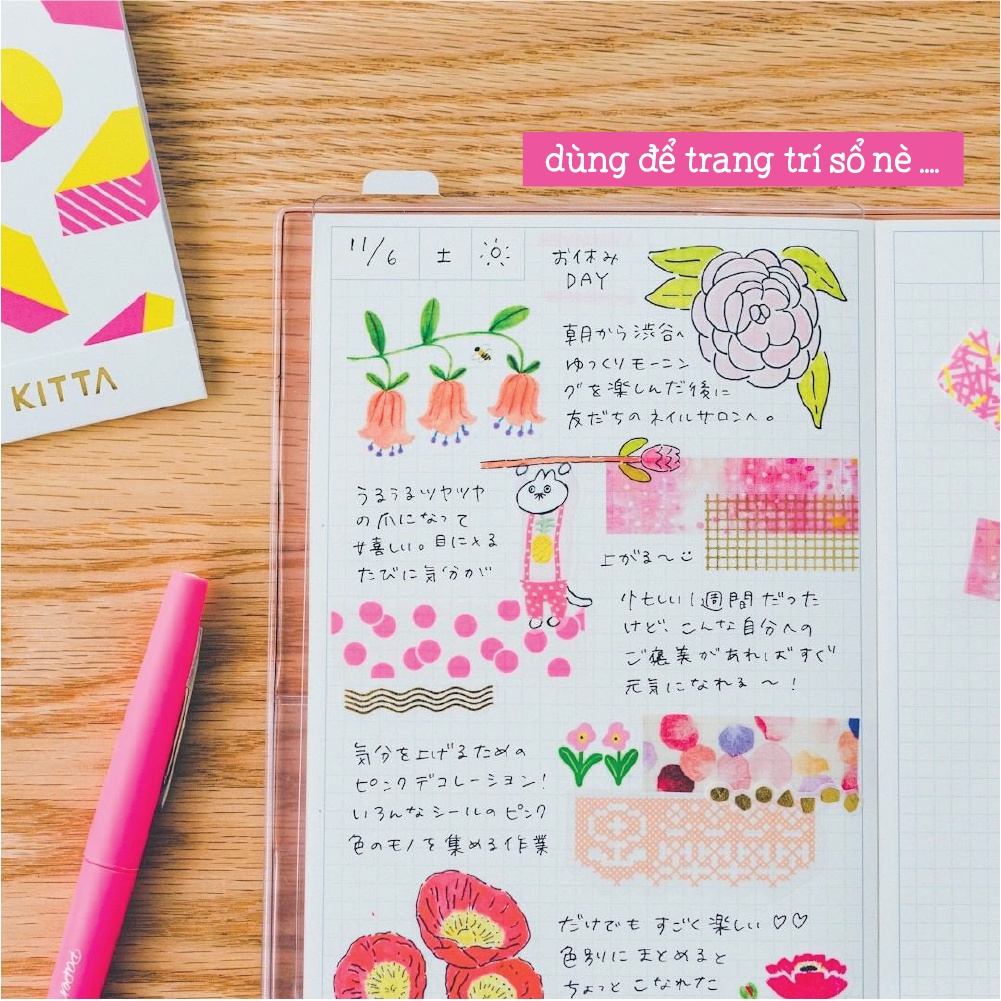 KITTA
dùng để trang trí sổ nè ....
11/6 土
お休み
DAY
朝から渋谷へ
ゆっくりモーニン
グを楽しんだ後に
友だちのネイルサロンへ。
うるうるツヤツヤ
の爪になって
嬉しい。目に入る
たびに気分が
上がる〜
忙しい1週間だった
けど、こんな自分への
ご褒美があればすぐ
元気になれる〜!
気分を上げるための
ピンクデコレーション!
いろんなシールのピンク
色のモノを集める作業
だけでも すごく楽しい♡♡
色別にまとめると
ちょっと こなれた
Paper